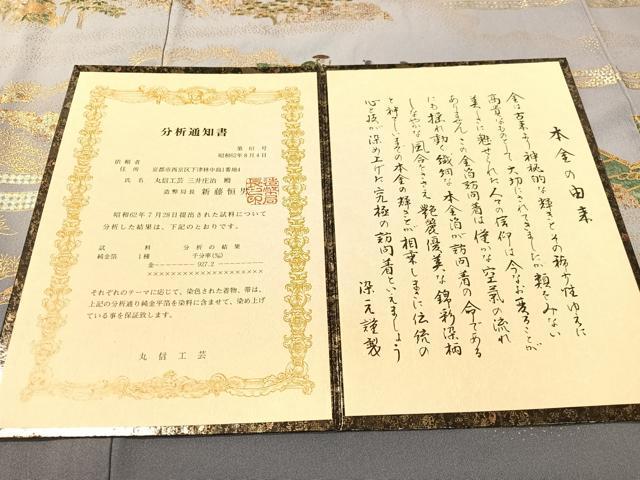 分析通知書
第 61 号
昭和62年8月4日
依頼者
住所 京都市西京区下津林中島1番地4
氏名 丸信工芸 三井庄治 殿
造幣局長 新藤恒男
昭和62年7月28日提出された試料について
分析した結果は、下記のとおりです。
試料 分析の結果
純金箔 1種 千分率(‰)
金 927.2
×××××××××××××××××××××
それぞれのテーマに応じて、染色された着物、帯は、
上記の分析通り純金平箔を染料に含ませて、染め上げ
ている事を保証致します。
丸信工芸
本金の由来
金は古来より神秘的な輝きとその稀少性ゆえに
高貴なものとして大切にされてきましたが類をみない
美しさに魅せられた人々の信仰は今なお異ることが
ありません この金箔訪問着は僅かな空気の流れ
にも揺れ動く繊細な本金箔が訪問着の命である
しなやかな風合をささえ艶麗優美な錦彩染柄
と神々しいまでの本金の輝きが相乗しまさに伝統の
心と技が染め上げた究極の訪問着といえましょう
染元謹製